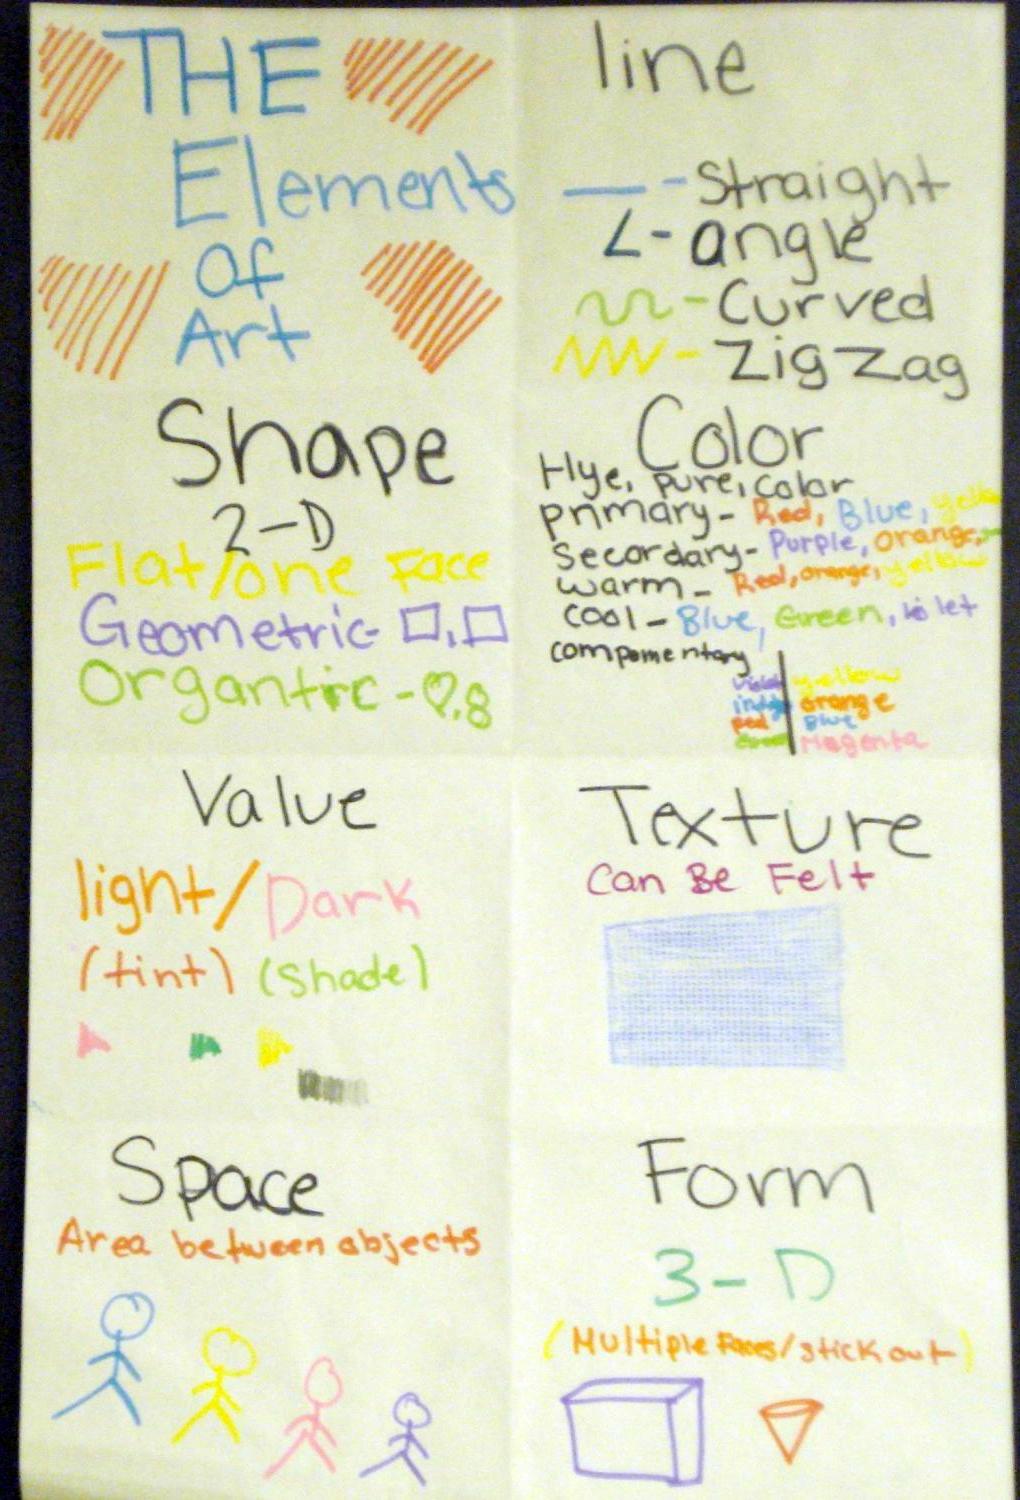 THE
Elements
of
Art
line
- Straight
- angle
- Curved
- Zig Zag
Shape
2-D
Flat/one Face
Geometric-
Organtic -
Color
Hye, pure, color
primary- Red, Blue, yellow
Secordary- Purple, orange,
warm - Red, orange, yellow
cool - Blue, Green, violet
compomentary
violet yellow
indigo orange
red Blue
Green Magenta
Value
light/Dark
(tint) (shade)
Texture
Can Be Felt
Space
Area between objects
Form
3-D
(Multiple Faces/stick out)